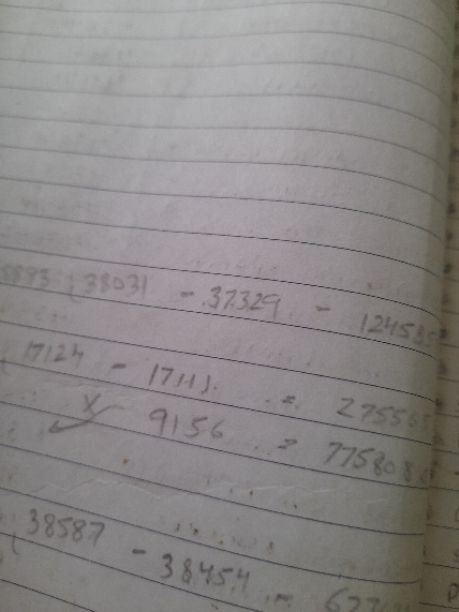 8893 (38031 - 37329 - 124535
(17124 - 17111. = 27555
X 9156 = 775808
(38587 - 38454 = 627